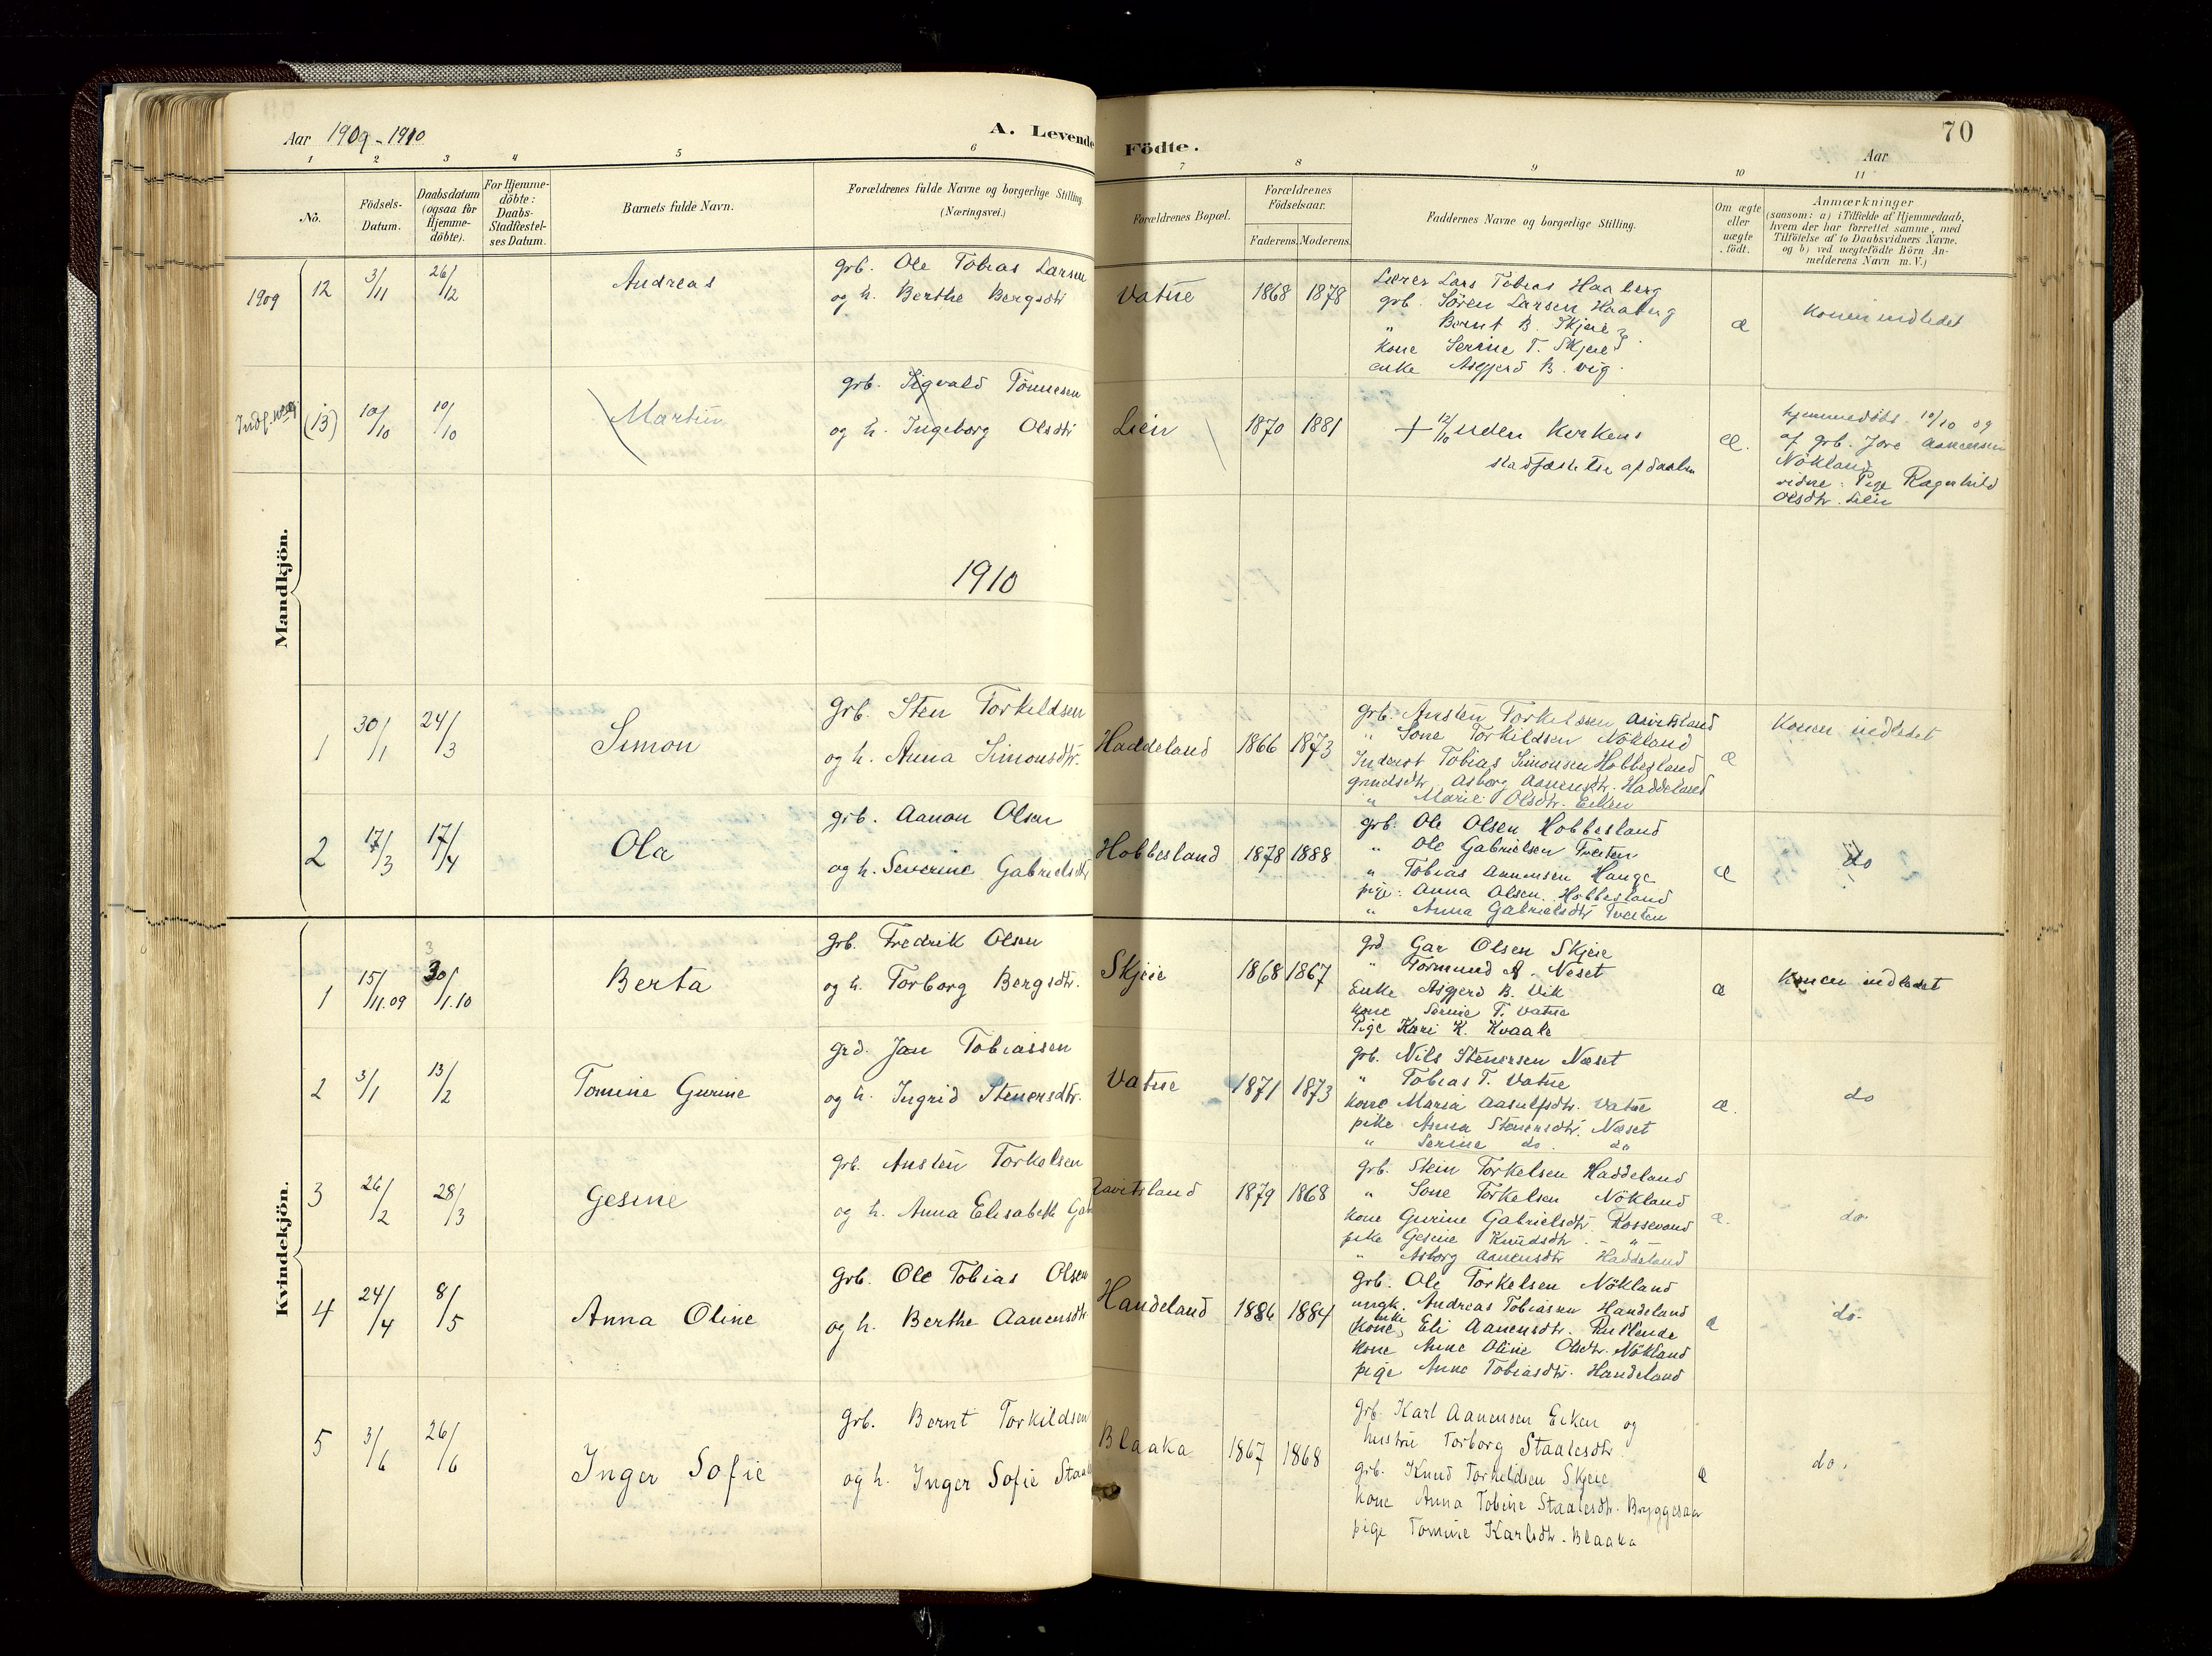 Aar 1909-1910
A. Levende Födte.
70
Aar
1 2 3 4 5 6 7 8 9 10 11
No.
Födsels-Datum.
Daabsdatum (ogsaa for Hjemme-döbte).
For Hjemme-döbte: Daabs-Stadfæstel-ses Datum.
Barnets fulde Navn.
Forældrenes fulde Navne og borgerlige Stilling (Næringsvei.)
Forældrenes Bopæl.
Forældrenes Födselsaar.
Faderens. Moderens.
Faddernes Navne og borgerlige Stilling.
Om ægte eller uægte födt.
Anmærkninger
(sansom: a) i Tilfælde af Hjemmedaab,
hvem der har forrettet samme, med
Tilföielse af to Daabsvidners Navne,
og b) ved uægtefödte Börn An-
melderens Navn m. V.)
Mandkjön.
1909 12 3/11 26/12 Andreas
grb. Ole Tobias Larsen
og h. Berthe Bergsdtr
Vatne 1868 1878
Lærer Lars Tobias Haaberg
grb. Sören Larsen Haaberg
" Bernt B. Skjeie
kone Serine T. Skjeie
enke Asgjerd B. Vig.
æ
Konen indledet
(13) 10/10 10/10 Martin
grb. Sigvald Tönnesen
og h. Ingeborg Olsdtr
Lien 1870 1881
+ 12/10 uden Kirkens
stadfæstelse af daaben
æ.
hjemmedöbt 10/10 09
af grb. Jore Aanensen
Nökland
vidne: Pige Ragnhild
Olsdtr. Lien
1910
1 30/1 24/3 Simon
grb. Sten Torkildsen
og h. Anna Simonsdtr.
Haddeland 1866 1873
grb. Austen Torkelssen
" Sone Torkildsen Nökland
Inderst Tobias Simonsen Hobbesland
grmdsdtr. Asborg Aanensdtr. Haddeland
" Marie Olsdtr. Eiken
æ
Konen indledet
2 17/3 17/4 Ola
grb. Aanon Olsen
og h. Severine Gabrielsdtr
Hobbesland 1878 1888
grb. Ole Olsen Hobbesland
" Ole Gabrielsen Tveiten
" Tobias Aanensen Hauge
pige. Anna Olsen. Hobbesland
" Anna Gabrielsdtr Tveiten
æ
do
Kvindekjön.
1 15/11.09 30/1.10 Berta
grb. Fredrik Olsen
og h. Torborg Bergsdtr.
Skjeie 1868 1867
grd Gar Olsen Skjeie
" Tormund A. Neset
Enke Asgjerd B. Vik
kone Serine T. Vatne
Pige Kari K. Kvaale
æ
Konen indledet
2 3/1 13/2 Tomine Gurine
grd. Jan Tobiassen
og h. Ingrid Stenersdtr.
Vatne 1871 1873
grb. Nils Stenersen Næset
" Tobias T. Vatne
kone Maria Aasulfsdtr. Vatne
pike Anna Stenersdtr. Næset
" Serine do. do
æ.
do
3 26/2 28/3 Gesine
grb. Austen Torkelsen
og h. Anna Elisabeth Gab
1879 1868
grb. Stein Torkelsen Haddeland
" Sone Torkelsen Nökland
kone Gurine Gabrielsdtr. Rossevand
pike Gesine Knudsdtr. - " -
" Asborg Aanensdtr Haddeland
æ.
do.
4 24/4 8/5 Anna Oline
grb. Ole Tobias Olsen
og h. Berthe Aanensdtr
Handeland 1886 1884
grb. Ole Torkelsen Nökland
ungk. Andreas Tobiasen Handeland
enke
kone, Eli Aanensdtr.
kone Anne Oline Olsdtr. Nökland
pige Anne Tobiasdtr. Handeland
æ
do.
5 3/6 26/6 Inger Sofie
grb. Bernt Torkildsen
og h. Inger Sofie Staal
Blaaka 1867 1868
grb. Karl Aanensen Eiken og
hustru Torborg Staalesdtr.
grb. Knud Torkildsen Skjeie
kone Anna Tobine Staalesdtr. Bryggesaa
pige Tomine Karlsdtr. Blaaka
æ
do.